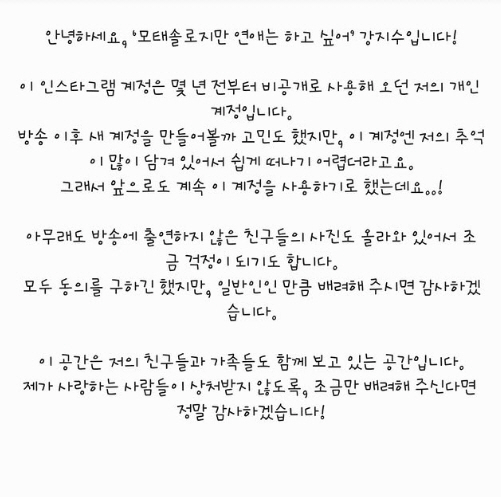 안녕하세요, '모태솔로지만 연애는 하고 싶어' 강지수입니다!
이 인스타그램 계정은 몇 년 전부터 비공개로 사용해 오던 저의 개인
계정입니다.
방송 이후 새 계정을 만들어볼까 고민도 했지만, 이 계정엔 저의 추억
이 많이 담겨 있어서 쉽게 떠나기 어렵더라고요.
그래서 앞으로도 계속 이 계정을 사용하기로 했는데요..!
아무래도 방송에 출연하지 않은 친구들의 사진도 올라와 있어서 조
금 걱정이 되기도 합니다.
모두 동의를 구하긴 했지만, 일반인인 만큼 배려해 주시면 감사하겠
습니다.
이 공간은 저의 친구들과 가족들도 함께 보고 있는 공간입니다.
제가 사랑하는 사람들이 상처받지 않도록, 조금만 배려해 주신다면
정말 감사하겠습니다!